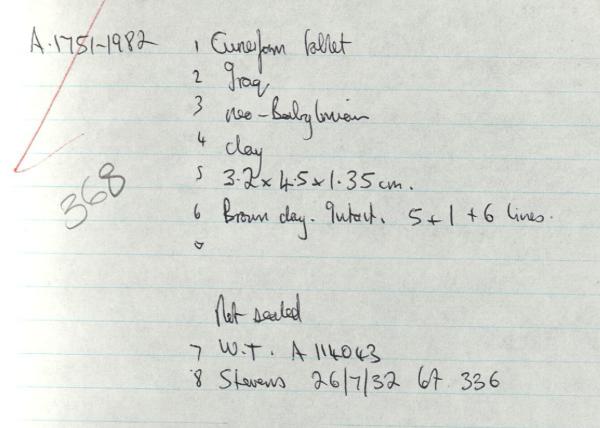 A.1751-1982 1 Cuneiform tablet
2 Iraq
3 neo-Babylonian
4 clay
368
5 3.2 x 4.5 x 1.35 cm.
6 Brown clay. Intact. 5 + 1 + 6 lines.
Not sealed
7 W.T. A 114043
8 Stevens 26/7/32 67 336